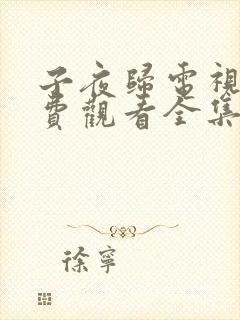 子夜歸電視
費觀看全集
徐寧